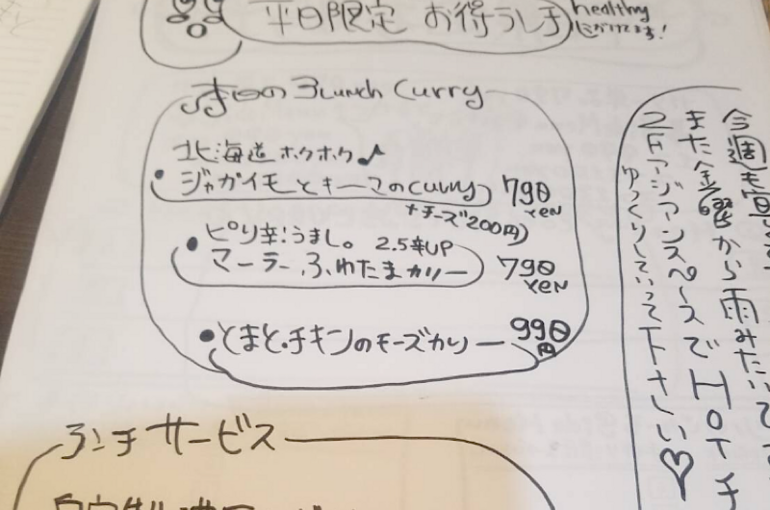 平日限定 お得らんち
healthy
本日の 3Lunch Curry
北海道 ホクホク♪
• ジャガイモとキーマのCurry 790
YEN
+チーズ200円)
• ピリ辛!うまし。 2.5辛UP
マーラーふわたまカリー 790
YEN
• とまと・チキンのチーズカリー 990
円
らんチ サービス
今週も
また金曜から雨みたい
2Fアジアンスペースで HOT チ
ゆっくりしていって下さい♡